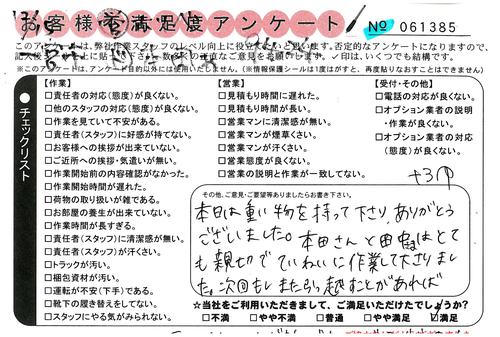 お客様満足度アンケート
№ 061385
このアンケートは、弊社作業スタッフのレベル向上に役立てたいと思います。否定的なアンケートになりますので、
記入後
ご意見をお願いします。✓印は、いくつでも結構です。
※このアンケートは、アンケート目的以外には使用いたしません。(※情報保護シールは1度はがすと、再度貼りなおすことはできません)
チェックリスト
【作業】
□責任者の対応(態度)が良くない。
□他のスタッフの対応(態度)が良くない。
□作業を見ていて不安がある。
□責任者(スタッフ)に好感が持てない。
□お客様への挨拶が出来ていない。
□ご近所への挨拶・気遣いが無い。
□作業開始前の内容確認がなかった。
□作業開始時間が遅れた。
□荷物の取り扱いが雑である。
□お部屋の養生が出来ていない。
□作業時間が長すぎる。
□責任者(スタッフ)に清潔感が無い。
□責任者(スタッフ)が汗くさい。
□トラックが汚い。
□梱包資材が汚い。
□運転が不安(下手)である。
□靴下の履き替えをしてない。
□スタッフにやる気がみられない。
【営業】
□見積もり時間に遅れた。
□見積もり時間が長い。
□営業マンに清潔感が無い。
□営業マンが煙草くさい。
□営業マンが汗くさい。
□営業態度が良くない。
□営業の説明と作業が一致してない。
【受付・その他】
□電話の対応が良くない。
□オプション業者の説明
・作業が良くない。
□オプション業者の対応
(態度)が良くない。
その他、ご意見・ご要望等ありましたらお書き下さい。
本日は重い物を持って下さり、ありがとう
ございました。本田さんと田
はとて
も親切でていねいに作業して下さりまし
た。次回もしまた引っ越すことがあれば
☆当社をご利用いただきまして、ご満足いただけたでしょうか?
□不満 □やや不満 □普通 □やや満足 ☑満足